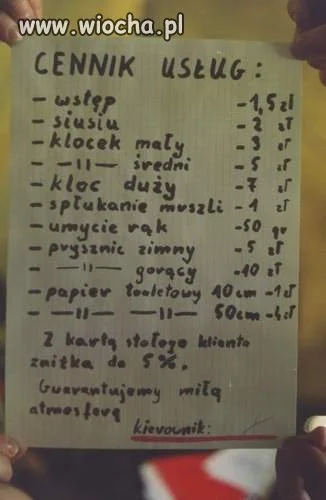 www.wiocha.pl
CENNIK USŁUG:
- wstęp - 1,5 zł
- siusiu - 2 zł
- klocek mały - 3 zł
- -11- średni - 5 zł
- kloc duży - 7 zł
- spłukanie muszli - 1 zł
- umycie rąk - 50 gr
- prysznic zimny - 5 zł
- -11- gorący - 10 zł
- papier toaletowy 10cm - 1 zł
- -11- -11- 50cm - 4 zł
Z kartą stałego klienta
zniżka do 5%.
Guarantujemy miłą
atmosferę
kierownik: